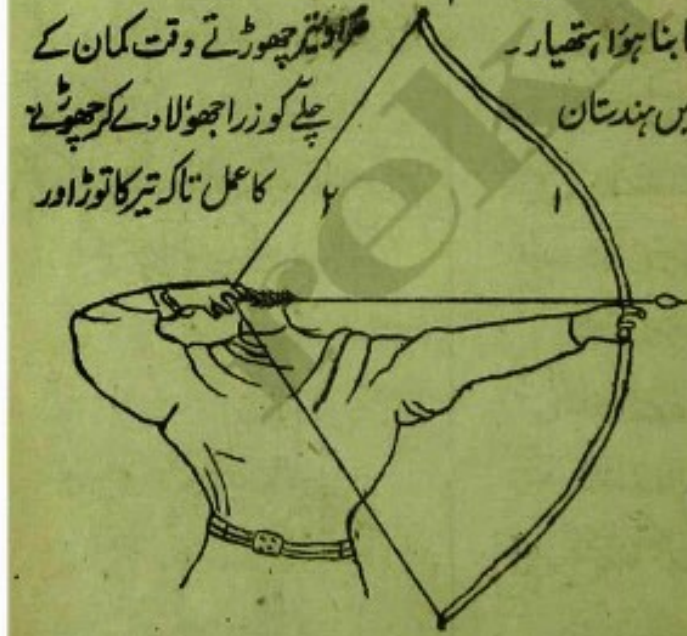 بنا ہؤا ہتھیار۔
ہندستان
چھوڑتے وقت کمان کے
چلّے کو زرا جھولا دے کر چھوڑنے
کا عمل تاکہ تیر کا توڑ اور
۱
۲
rekh